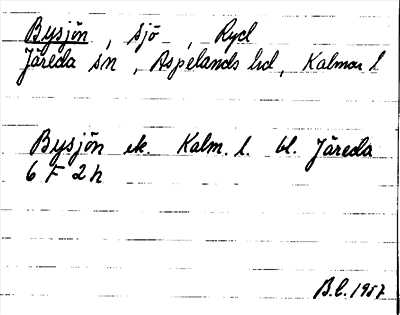 Bysjön, sjö, Ryd
Järeda sn, Aspelands hd, Kalmar l.
Bysjön ek. Kalm. l. bl. Järeda
6 F 2 h
B.L. 1957